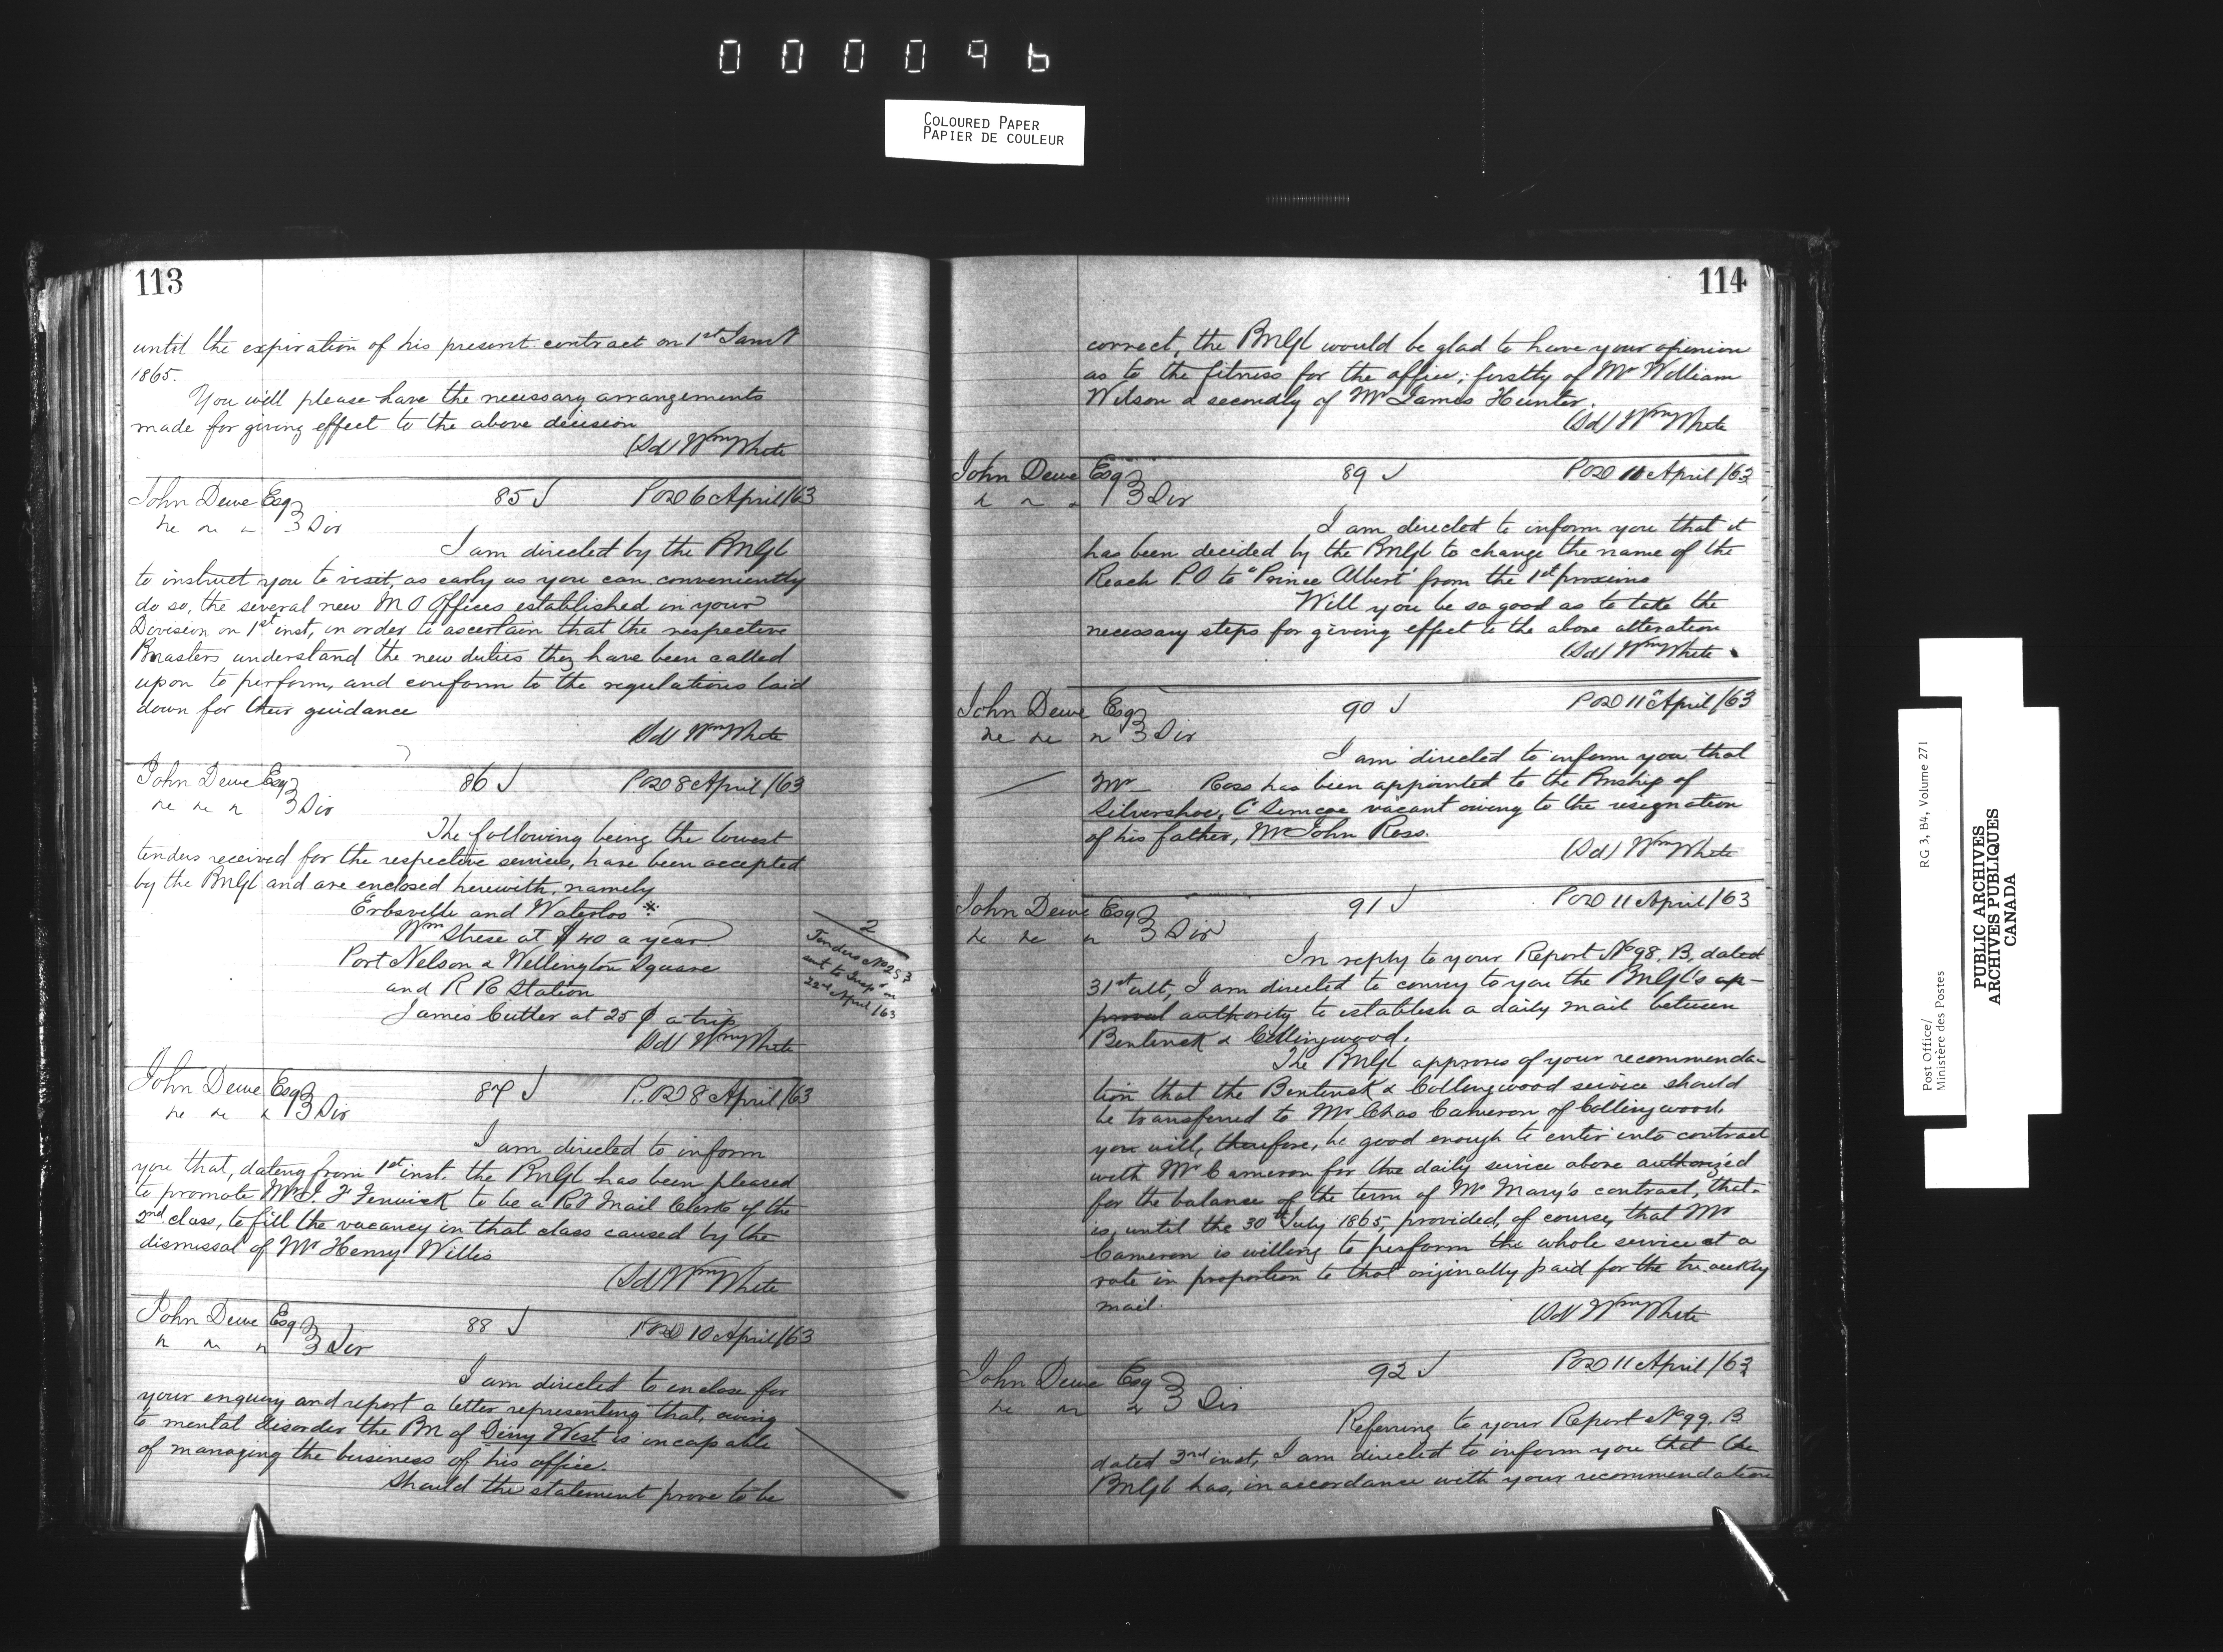 000096
COLOURED PAPER
PAPIER DE COULEUR
113
until the expiration of his present contract on 1st
1865.
You will please have the necessary arrangements
made for giving effect to the above decision
(Sd) Wm White
John Dewe Esq 85 POD 6 April/63
3 Div
I am directed by the PMGl
to instruct you to visit, as early as you can conveniently
do so, the several new M O Offices established in your
Division on 1st inst, in order to ascertain that the respective
Pmasters understand the new duties they have been called
upon to perform, and conform to the regulations laid
down for their guidance
(Sd) Wm White
John Dewe Esq 86 POD 8 April/63
3 Div
The following being the lowest
tenders received for the respective services, have been accepted
by the PMGl and are enclosed herewith, namely
Erbsville and Waterloo *
Wm Strese at $40 a year
Port Nelson & Wellington Square
and R R Station
James Cutler at 25 ¢ a trip
(Sd) Wm White
2
Tenders No 253
sent to Inspr on
22nd April/63
John Dewe Esq 87 P.OD 8 April/63
3 Div
I am directed to inform
you that, dating from 1st inst. the PMGl has been pleased
to promote Mr J. F Fenwick to be a RP Mail Clerk of the
2nd class, to fill the vacancy in that class caused by the
dismissal of Mr Henry Willis
(Sd) Wm White
John Dewe Esq 88 POD 10 April/63
3 Div
I am directed to enclose for
your enquiry and report a letter representing that, owing
to mental disorder the PM of Derry West is incapable
of managing the business of his office.
Should the statement prove to be
114
correct, the PMGl would be glad to have your opinion
as to the fitness for the office; firstly of Mr William
Wilson & secondly of Mr James Hunter.
(Sd) Wm White
John Dewe Esq 89 POD 11 April/63
3 Div
I am directed to inform you that it
has been decided by the PMGl to change the name of the
Reach P.O to "Prince Albert" from the 1st proximo
Will you be so good as to take the
necessary steps for giving effect to the above alteration
(Sd) Wm White
John Dewe Esq 90 POD 11 April/63
3 Div
I am directed to inform you that
Mr — Ross has been appointed to the Pmship of
Silvershoe, Co Simcoe vacant owing to the resignation
of his father, Mr John Ross.
(Sd) Wm White
John Dewe Esq 91 POD 11 April/63
3 Div
In reply to your Report No 98. B, dated
31st ult, I am directed to convey to you the PMGl's ap-
proval authority to establish a daily mail between
Bentinck & Collingwood.
The PMGl approves of your recommenda-
tion that the Bentinck & Collingwood service should
be transferred to Mr Chas Cameron of Collingwood.
you will, therefore, be good enough to enter into contract
with Mr Cameron for the daily service above authorized
for the balance of the term of Mr Mary's contract, that
is, until the 30th July 1865, provided, of course, that Mr
Cameron is willing to perform the whole service at a
rate in proportion to that originally paid for the tri weekly
mail.
(Sd) Wm White
John Dewe Esq 92 POD 11 April/63
3 Div
Referring to your Report No 99. B
dated 3rd inst, I am directed to inform you that the
PMGl has, in accordance with your recommendation
Post Office/
Ministère des Postes
RG 3, B4, Volume 271
PUBLIC ARCHIVES
ARCHIVES PUBLIQUES
CANADA